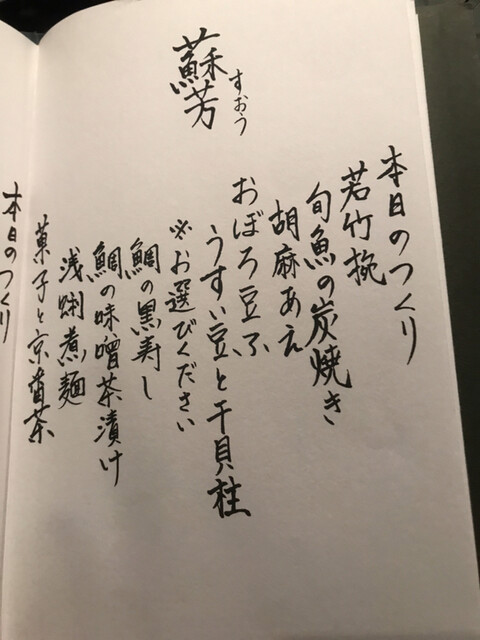 蘇芳
すおう
本日のつくり
若竹椀
旬魚の炭焼き
胡麻あえ
おぼろ豆ふ
うすい豆と干貝柱
※お選びください
鯛の黒寿し
鯛の味噌茶漬け
浅蜊煮麺
菓子と京番茶
本日のつくり